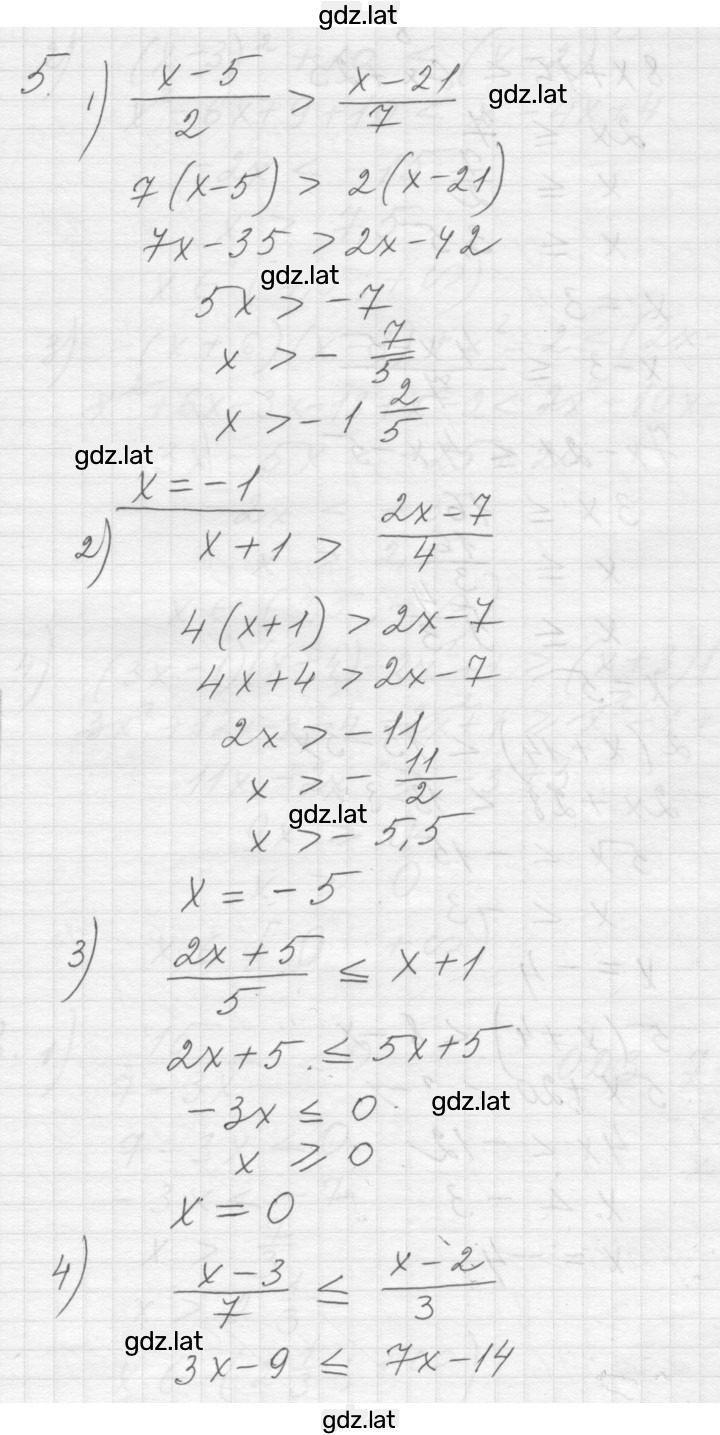 gdz.lat
5. 1) (x-5)/2 > (x-21)/7 gdz.lat
7(x-5) > 2(x-21)
7x-35 > 2x-42
gdz.lat
5x > -7
x > - 7/5
x > -1 2/5
gdz.lat
x = -1
2) x+1 > (2x-7)/4
4(x+1) > 2x-7
4x+4 > 2x-7
2x > -11
x > - 11/2
gdz.lat
x > - 5,5
x = -5
3) (2x+5)/5 ≤ x+1
2x+5 ≤ 5x+5
-3x ≤ 0 gdz.lat
x ≥ 0
x = 0
4) (x-3)/7 ≤ (x-2)/3
gdz.lat
3x-9 ≤ 7x-14
gdz.lat